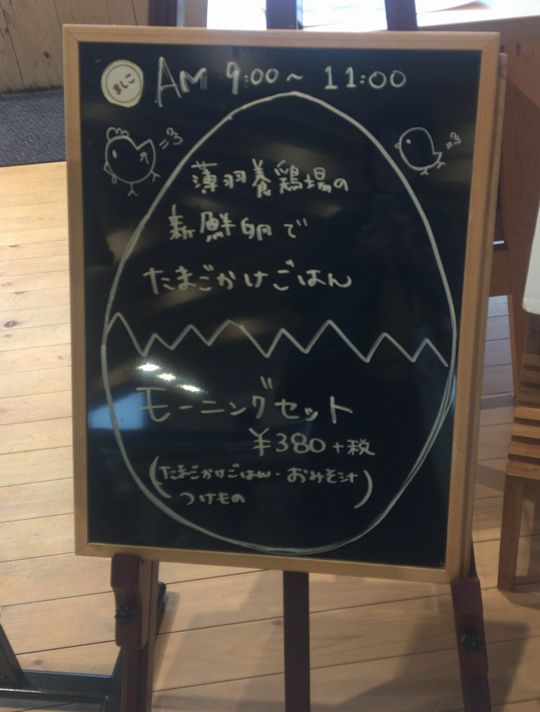 ましこ
AM 9:00～11:00
薄羽養鶏場の
新鮮卵で
たまごかけごはん
モーニングセット
¥380+税
(たまごかけごはん・おみそ汁
つけもの)